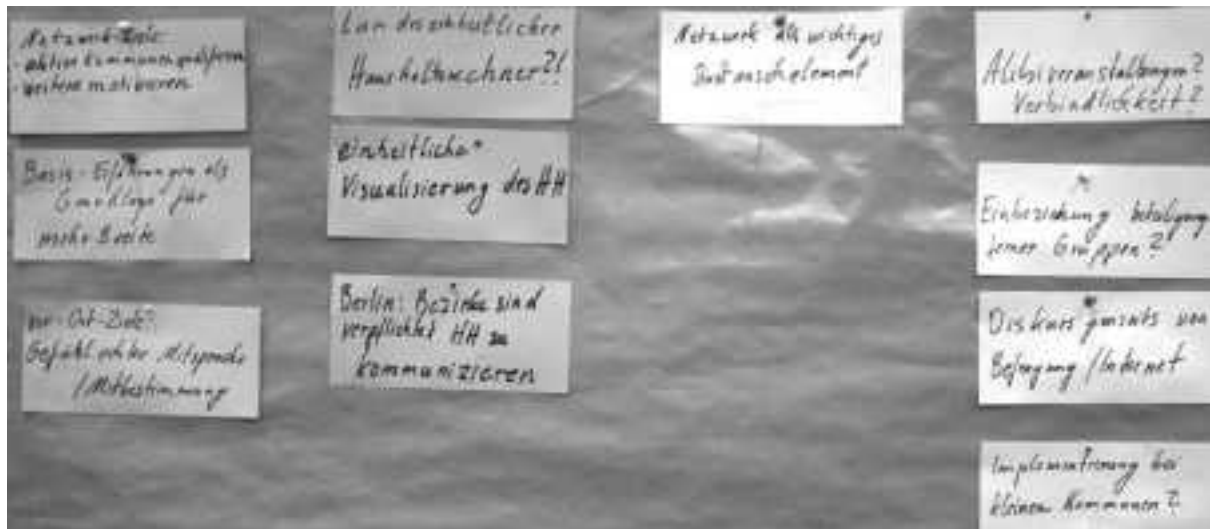 Netzwerk-Ziele
- aktive Kommunen
- weitere motivieren
Basis-Erfahrungen als
Grundlage für
mehr Breite
Vor-Ort-Ziele?
Gefühl echter Mitsprache
/Mitbestimmung
Haushaltsrechner?!
einheitliche
Visualisierung des HH
Berlin: Bezirke sind
verpflichtet HH zu
kommunizieren
Netzwerk als wichtiges
Alibiveranstaltungen?
Verbindlichkeit?
Einbeziehung
ferner Gruppen?
Diskurs jenseits von
Befragung/Internet
Implementierung bei
kleinen Kommunen?